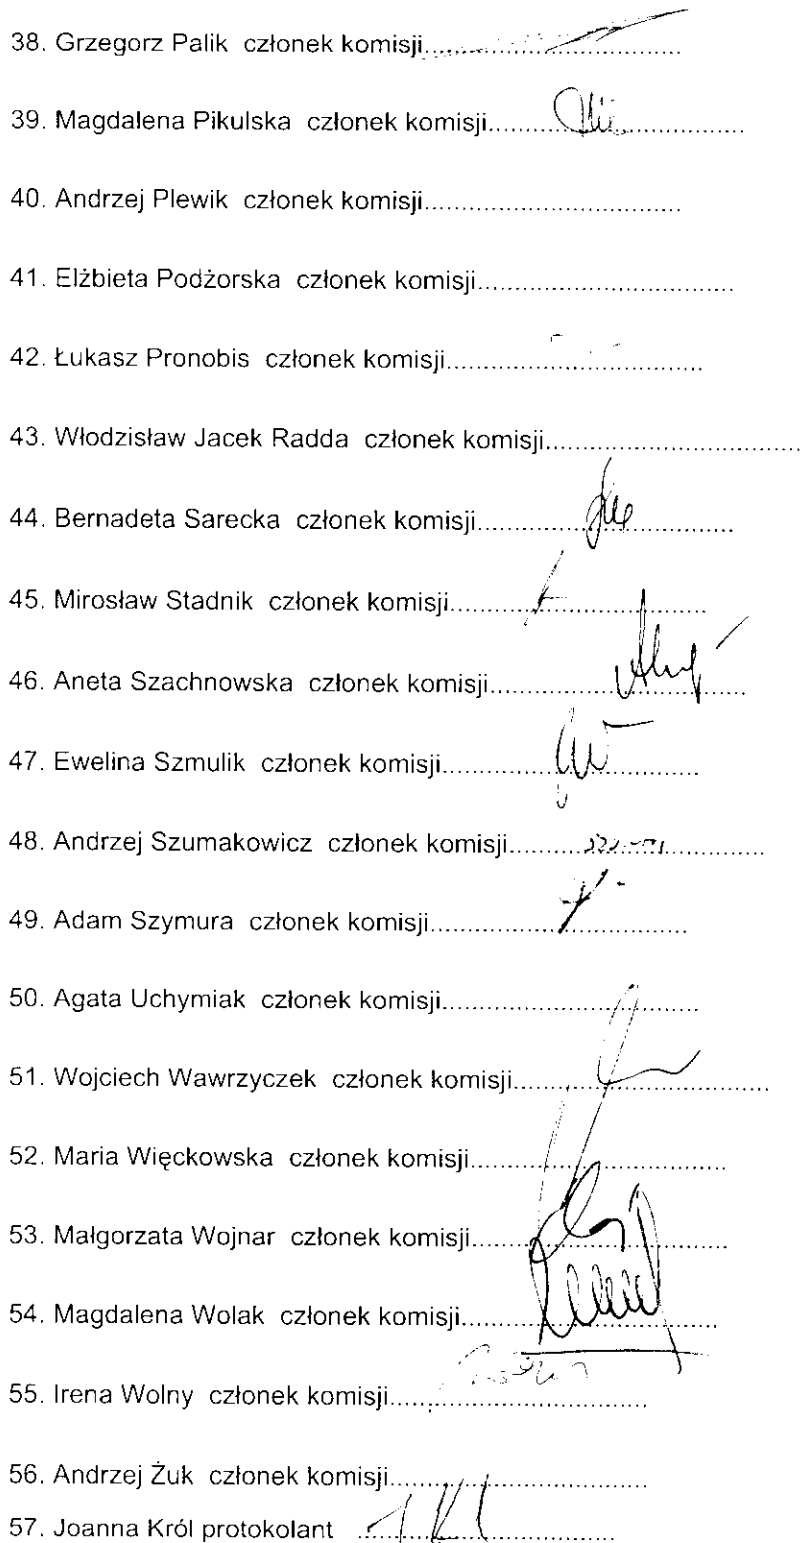 38. Grzegorz Palik  członek komisji..................................
39. Magdalena Pikulska  członek komisji..................................
40. Andrzej Plewik  członek komisji..................................
41. Elżbieta Podżorska  członek komisji..................................
42. Łukasz Pronobis  członek komisji..................................
43. Włodzisław Jacek Radda  członek komisji..................................
44. Bernadeta Sarecka  członek komisji..................................
45. Mirosław Stadnik  członek komisji..................................
46. Aneta Szachnowska  członek komisji..................................
47. Ewelina Szmulik  członek komisji..................................
48. Andrzej Szumakowicz  członek komisji..................................
49. Adam Szymura  członek komisji..................................
50. Agata Uchymiak  członek komisji..................................
51. Wojciech Wawrzyczek  członek komisji..................................
52. Maria Więckowska  członek komisji..................................
53. Małgorzata Wojnar  członek komisji..................................
54. Magdalena Wolak  członek komisji..................................
55. Irena Wolny  członek komisji..................................
56. Andrzej Żuk  członek komisji..................................
57. Joanna Król protokolant  ..................................